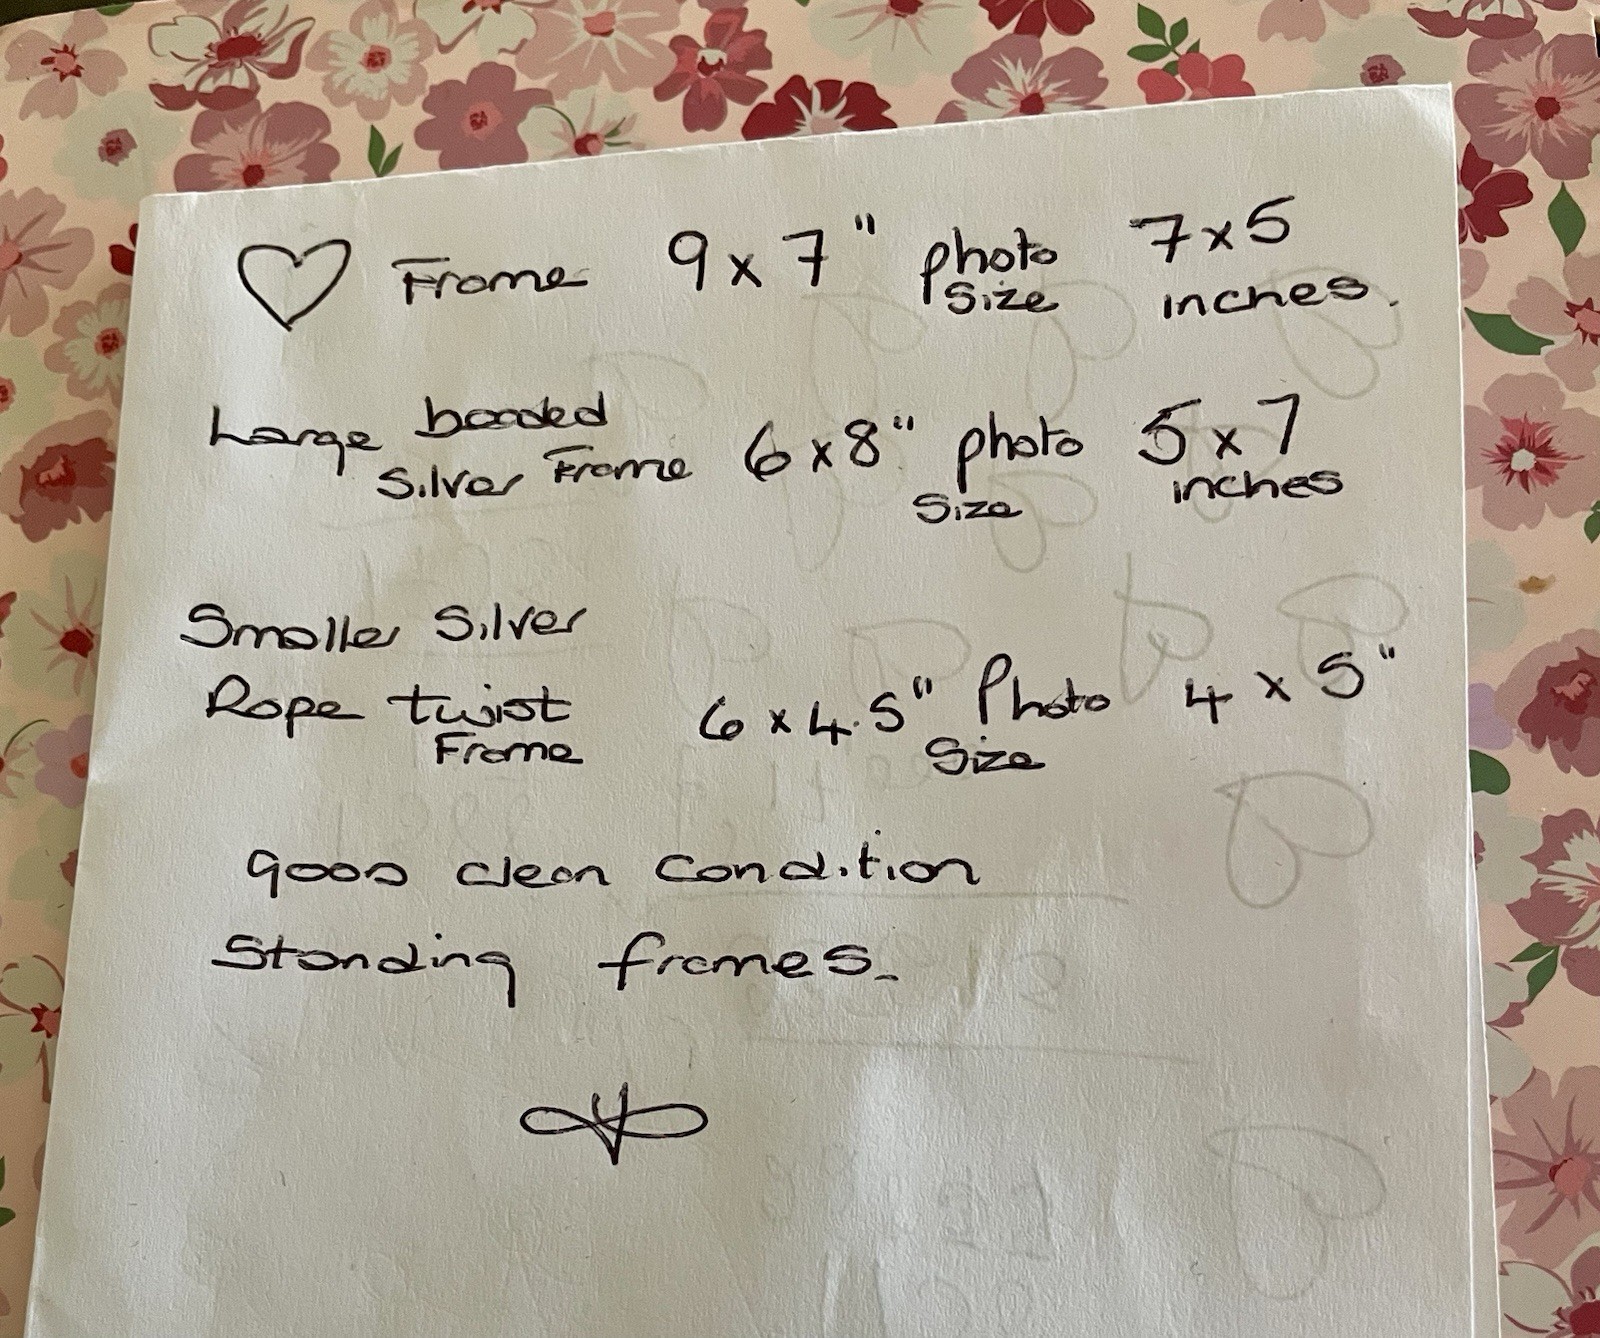 ♡ Frame 9 x 7" photo size 7 x 5 inches.
Large beaded Silver Frame 6 x 8" photo size 5 x 7 inches
Smaller Silver
Rope twist Frame 6 x 4.5" Photo Size 4 x 5"
good clean condition
Standing frames.